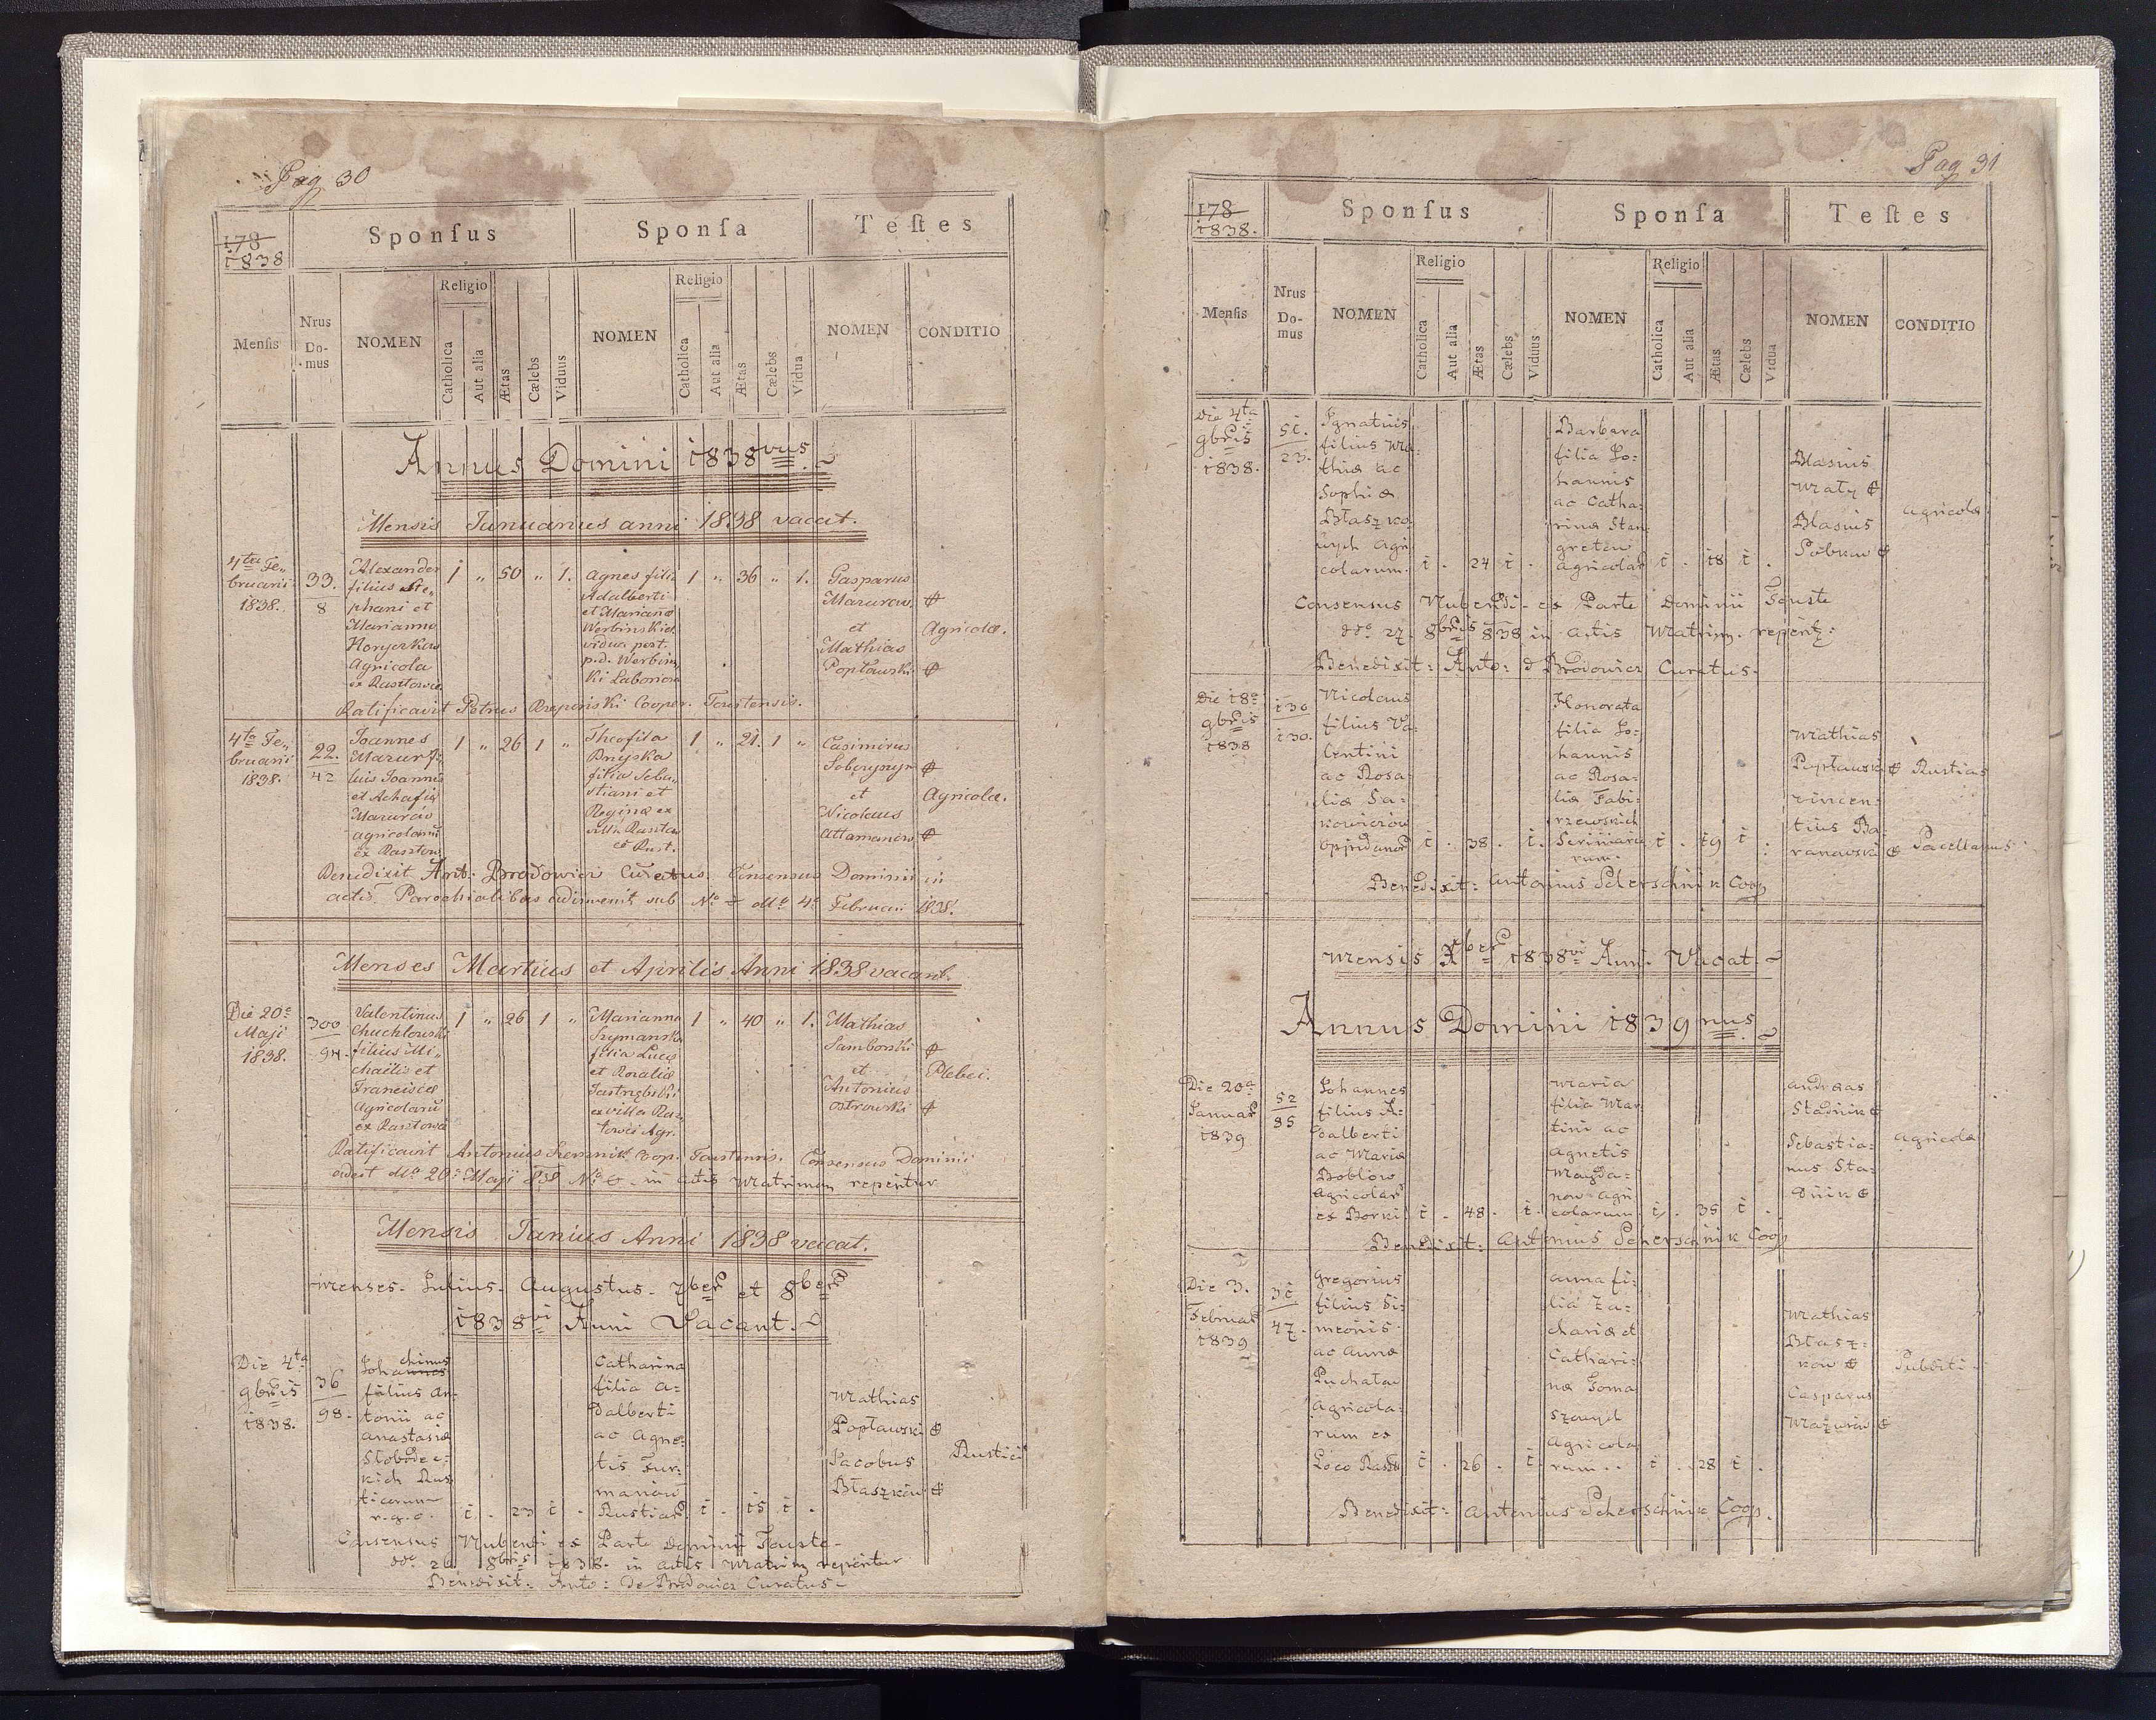 Pag 30
178
1838
Sponſus
Sponſa
Teſtes
Menſis
Nrus Do-mus
NOMEN
Religio
Catholica
Aut alia
Ætas
Cælebs
Viduus
NOMEN
Religio
Catholica
Aut alia
Ætas
Cælebs
Vidua
NOMEN
CONDITIO
Annus Domini 1838vus
Mensis Januarius anni 1838 vacat.
4ta Fe-
bruarii
1838.
33.
8
Alexander
filius Ste-
phani et
Marianna
Agricola
ex Rasztowce
1 " 50 " 1.
Agnes filia
Adalberti
et Mariana
vidua post
1 " 36 " 1.
Gasparus
Mazurow
et
Mathias
Popławski
Agricolæ.
Ratificavit Petrus Cooper. Toustensis.
4ta Fe-
bruarii
1838.
22.
42
Joannes
Mazur fi-
lius Joannis
et
Mazurów
agricolarū
ex Rasztow
1 " 26 1 "
Theofila
filia Seba-
stiani et
Reginæ ex
villa Raszto
et Rust.
1 " 21. 1 "
Casimirus
et
Nicolaus
Attamanow
Agricolæ.
Benedixit Ant: Brodowicz Curatus. Consensus Dominii in
actis Parochialibus sub No 4a Februarii 1838.
Menses Martius et Aprilis Anni 1838 vacant.
Die 20a
Maji
1838.
300
94.
Valentinus
Chuchlowski
filius Mi-
chaelis et
Franciscæ
Agricolarū
ex Rasztowce
1 " 26 1 "
Marianna
Szymanska
filia Lucæ
et Rosaliæ
ex villa Ras-
towce Agr.
1 " 40 " 1.
Mathias
Samborski
et
Antonius
Ostrowski
Plebei.
Ratificavit Antonius Coop. Toustensis. Consensus Dominii
adest 20a Maji 838 No 6. in actis Matrimon reperitur
Mensis Junius Anni 1838 vacat.
Menses. Julius. Augustus. 7ber et 8ber
1838vi Anni Vacant.
Die 4ta
9bris
1838.
36
98.
Johachimus
filius An-
tonii ac
Anastasiæ
Slobodec-
kich Rus-
ticorum
r. g. c.
1 . 23 1 .
Catharina
filia A-
dalberti
ac Agne-
tis Fur-
manow
1 . 15 1 .
Mathias
Popławski
Jacobus
Błaszków
Rustici
Consensus Nubendi ex Parte Dominii Touste
8bris 1838. in actis Matrim reperitur
Benedixit: Anto: de Brodowicz Curatus
Pag 31
178
1838.
Sponſus
Sponſa
Teſtes
Menſis
Nrus Do-mus
NOMEN
Religio
Catholica
Aut alia
Ætas
Cælebs
Viduus
NOMEN
Religio
Catholica
Aut alia
Ætas
Cælebs
Vidua
NOMEN
CONDITIO
Die 4ta
9bris
1838.
51.
23.
Ignatius
filius Ma-
thiæ ac
Sophiæ
Błaszko-
wych Agri
colarum.
1 . 24 1 .
Barbara
filia Jo-
hannis
ac Catha-
rinæ
1 . 18 1 .
Blasius
Blasius
Agricolæ
Consensus Nubendi ex Parte Dominii Touste
ddo 27. 8bris 838 in actis Matrim. reperit:
Benedixit: Anto: d Brodowicz Curatus.
Die 18a
9bris
1838
130
130.
Nicolaus
filius Va-
lentini
ac Rosa-
liæ Sa-
1 . 38 . 1.
Honorata
filia Jo-
hannis
ac Rosa-
liæ Fabi-
1 . 19 1 .
Mathias
Popławski
Vincen-
tius Ba-
ranowski
Benedixit: Antonius Scherschnik Coop
Mensis Xber 1838vi Anni Vacat.
Annus Domini 1839nus
Die 20a
Januar
1839
52
95
Johannes
filius A-
dalberti
ac Mariæ
Boblow
agricolar
ex Borki
1 . 48 . 1.
Maria
filia Mar-
tini ac
Agnetis
Magda-
now agri-
colarum
1 . 35 1 .
Andreas
Stadnik
Sebastia-
nus Sta-
dnik
Agricolæ
Benedixit: Antonius Scherschnik Coop
Die 3.
Februar
1839
31
47.
Gregorius
filius Si-
meonis
ac Annæ
Puchatow
Agricola-
rum ex
Loco Raszt
1 . 26 . 1
Anna fi-
lia Za-
chariæ et
Cathari-
næ
Agricola
rum
1 . 28 1 .
Mathias
Błasz-
kow
Casparus
Mazurów
Subditi
Benedixit: Antonius Scherschnik Coop.